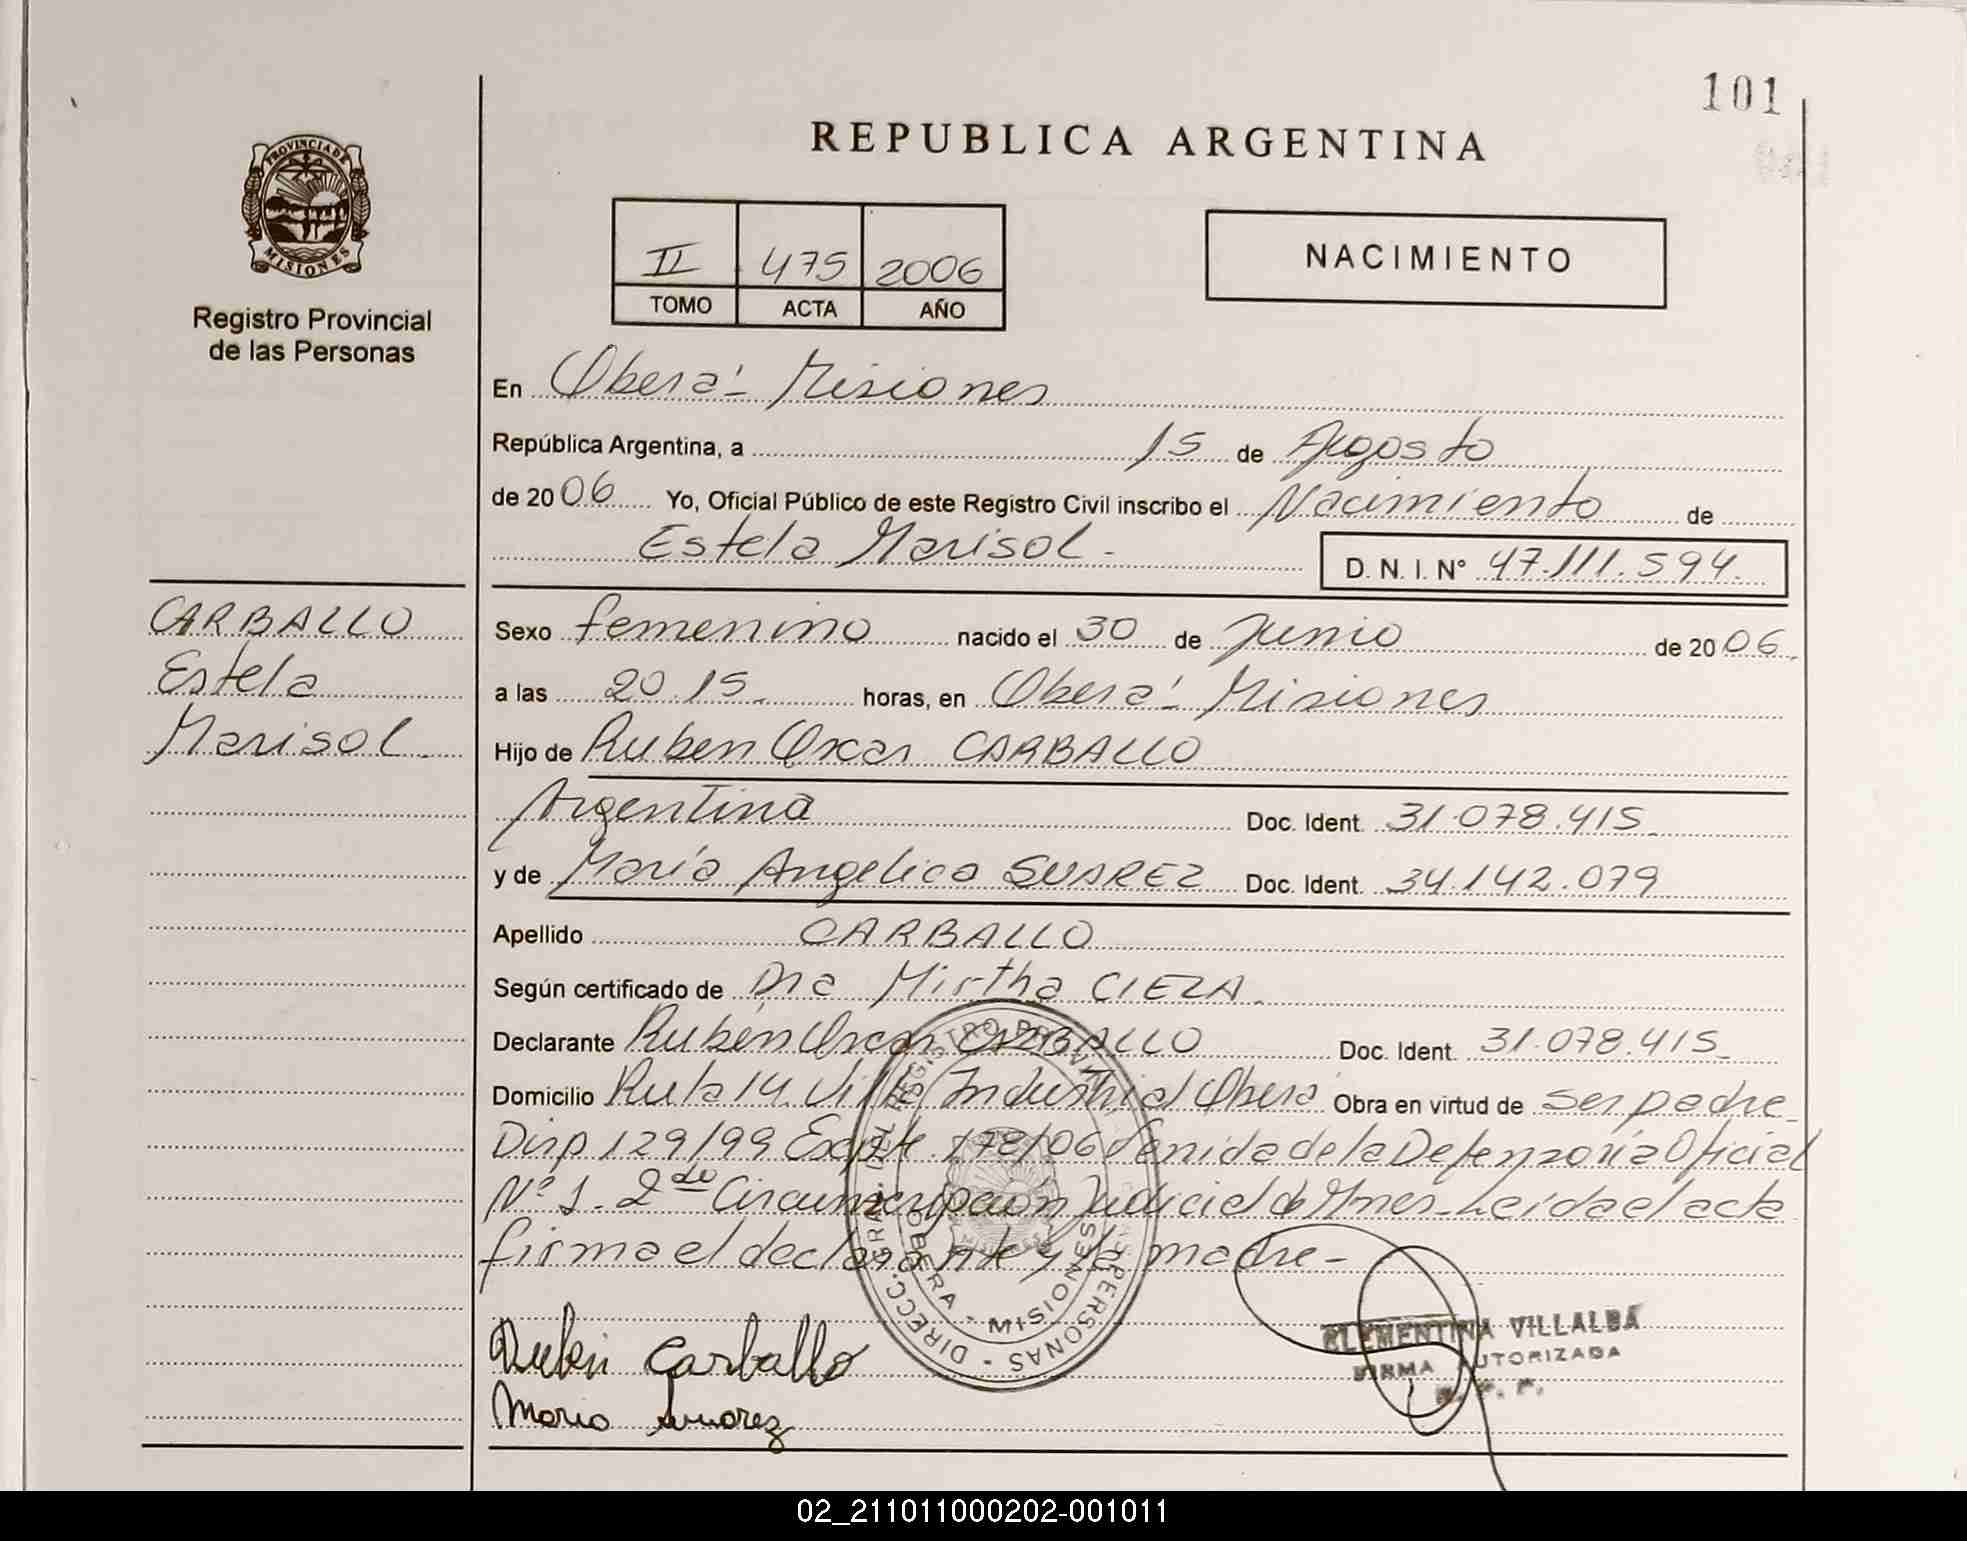 101
REPUBLICA ARGENTINA
PROVINCIA DE
MISIONES
Registro Provincial
de las Personas
II 475 2006
TOMO ACTA AÑO
NACIMIENTO
En Oberá - Misiones
República Argentina, a 15 de Agosto
de 2006 Yo, Oficial Público de este Registro Civil inscribo el Nacimiento de
Estela Marisol -
D. N. I. N° 47.111.594.
CARBALLO
Estela
Marisol.
Sexo femenino nacido el 30 de Junio de 2006.
a las 20.15. horas, en Oberá - Misiones
Hijo de Ruben Oscar CARBALLO
Argentina Doc. Ident. 31.078.415.
y de María Angelica SUAREZ Doc. Ident. 34.142.079
Apellido CARBALLO
Según certificado de Dra Mirtha CIEZA.
Declarante Rubén Oscar CARBALLO Doc. Ident. 31.078.415.
Domicilio Ruta 14 Villa Industrial Oberá Obra en virtud de ser padre
Disp 129/99 Expte. 172/06 venida de la Defensoría Oficial
N° 1. 2da Circunscripción Judicial de Mnes. Leída el acta
firma el declarante y la madre -
DIRECC. GRAL. DEL REGISTRO PROVINCIAL DE LAS PERSONAS
OBERA - MISIONES
Ruben Carballo
Maria Suarez
CLEMENTINA VILLALBA
FIRMA AUTORIZADA
R. P. P.
02_211011000202-001011